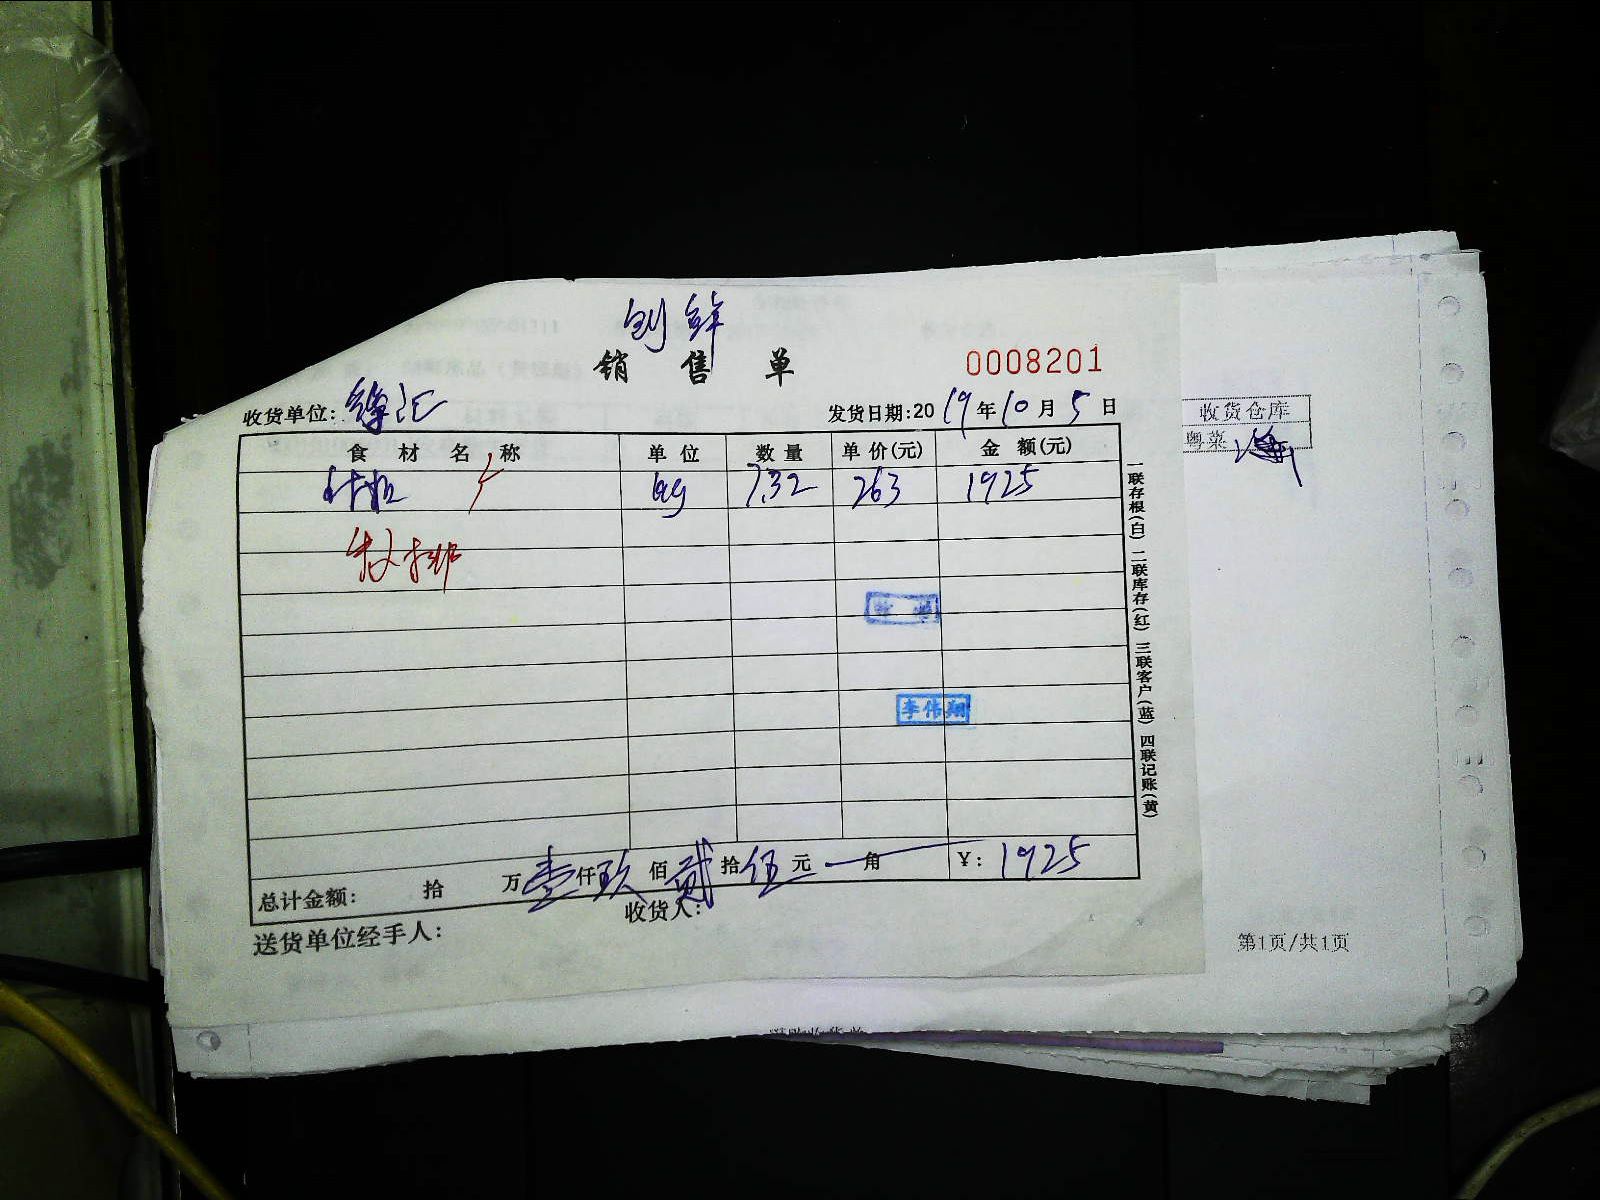 销 售 单
0008201
收货单位: 徐汇
发货日期:2019年10月5日
收货仓库
粤菜
食 材 名 称 单 位 数 量 单 价(元) 金 额(元)
kg 7.32 263 1925
牧排
李伟翔
一联存根(白) 二联库存(红) 三联客户(蓝) 四联记账(黄)
总计金额: 拾 万 壹仟玖佰贰拾伍元 角 ¥: 1925
送货单位经手人: 收货人:
第1页/共1页